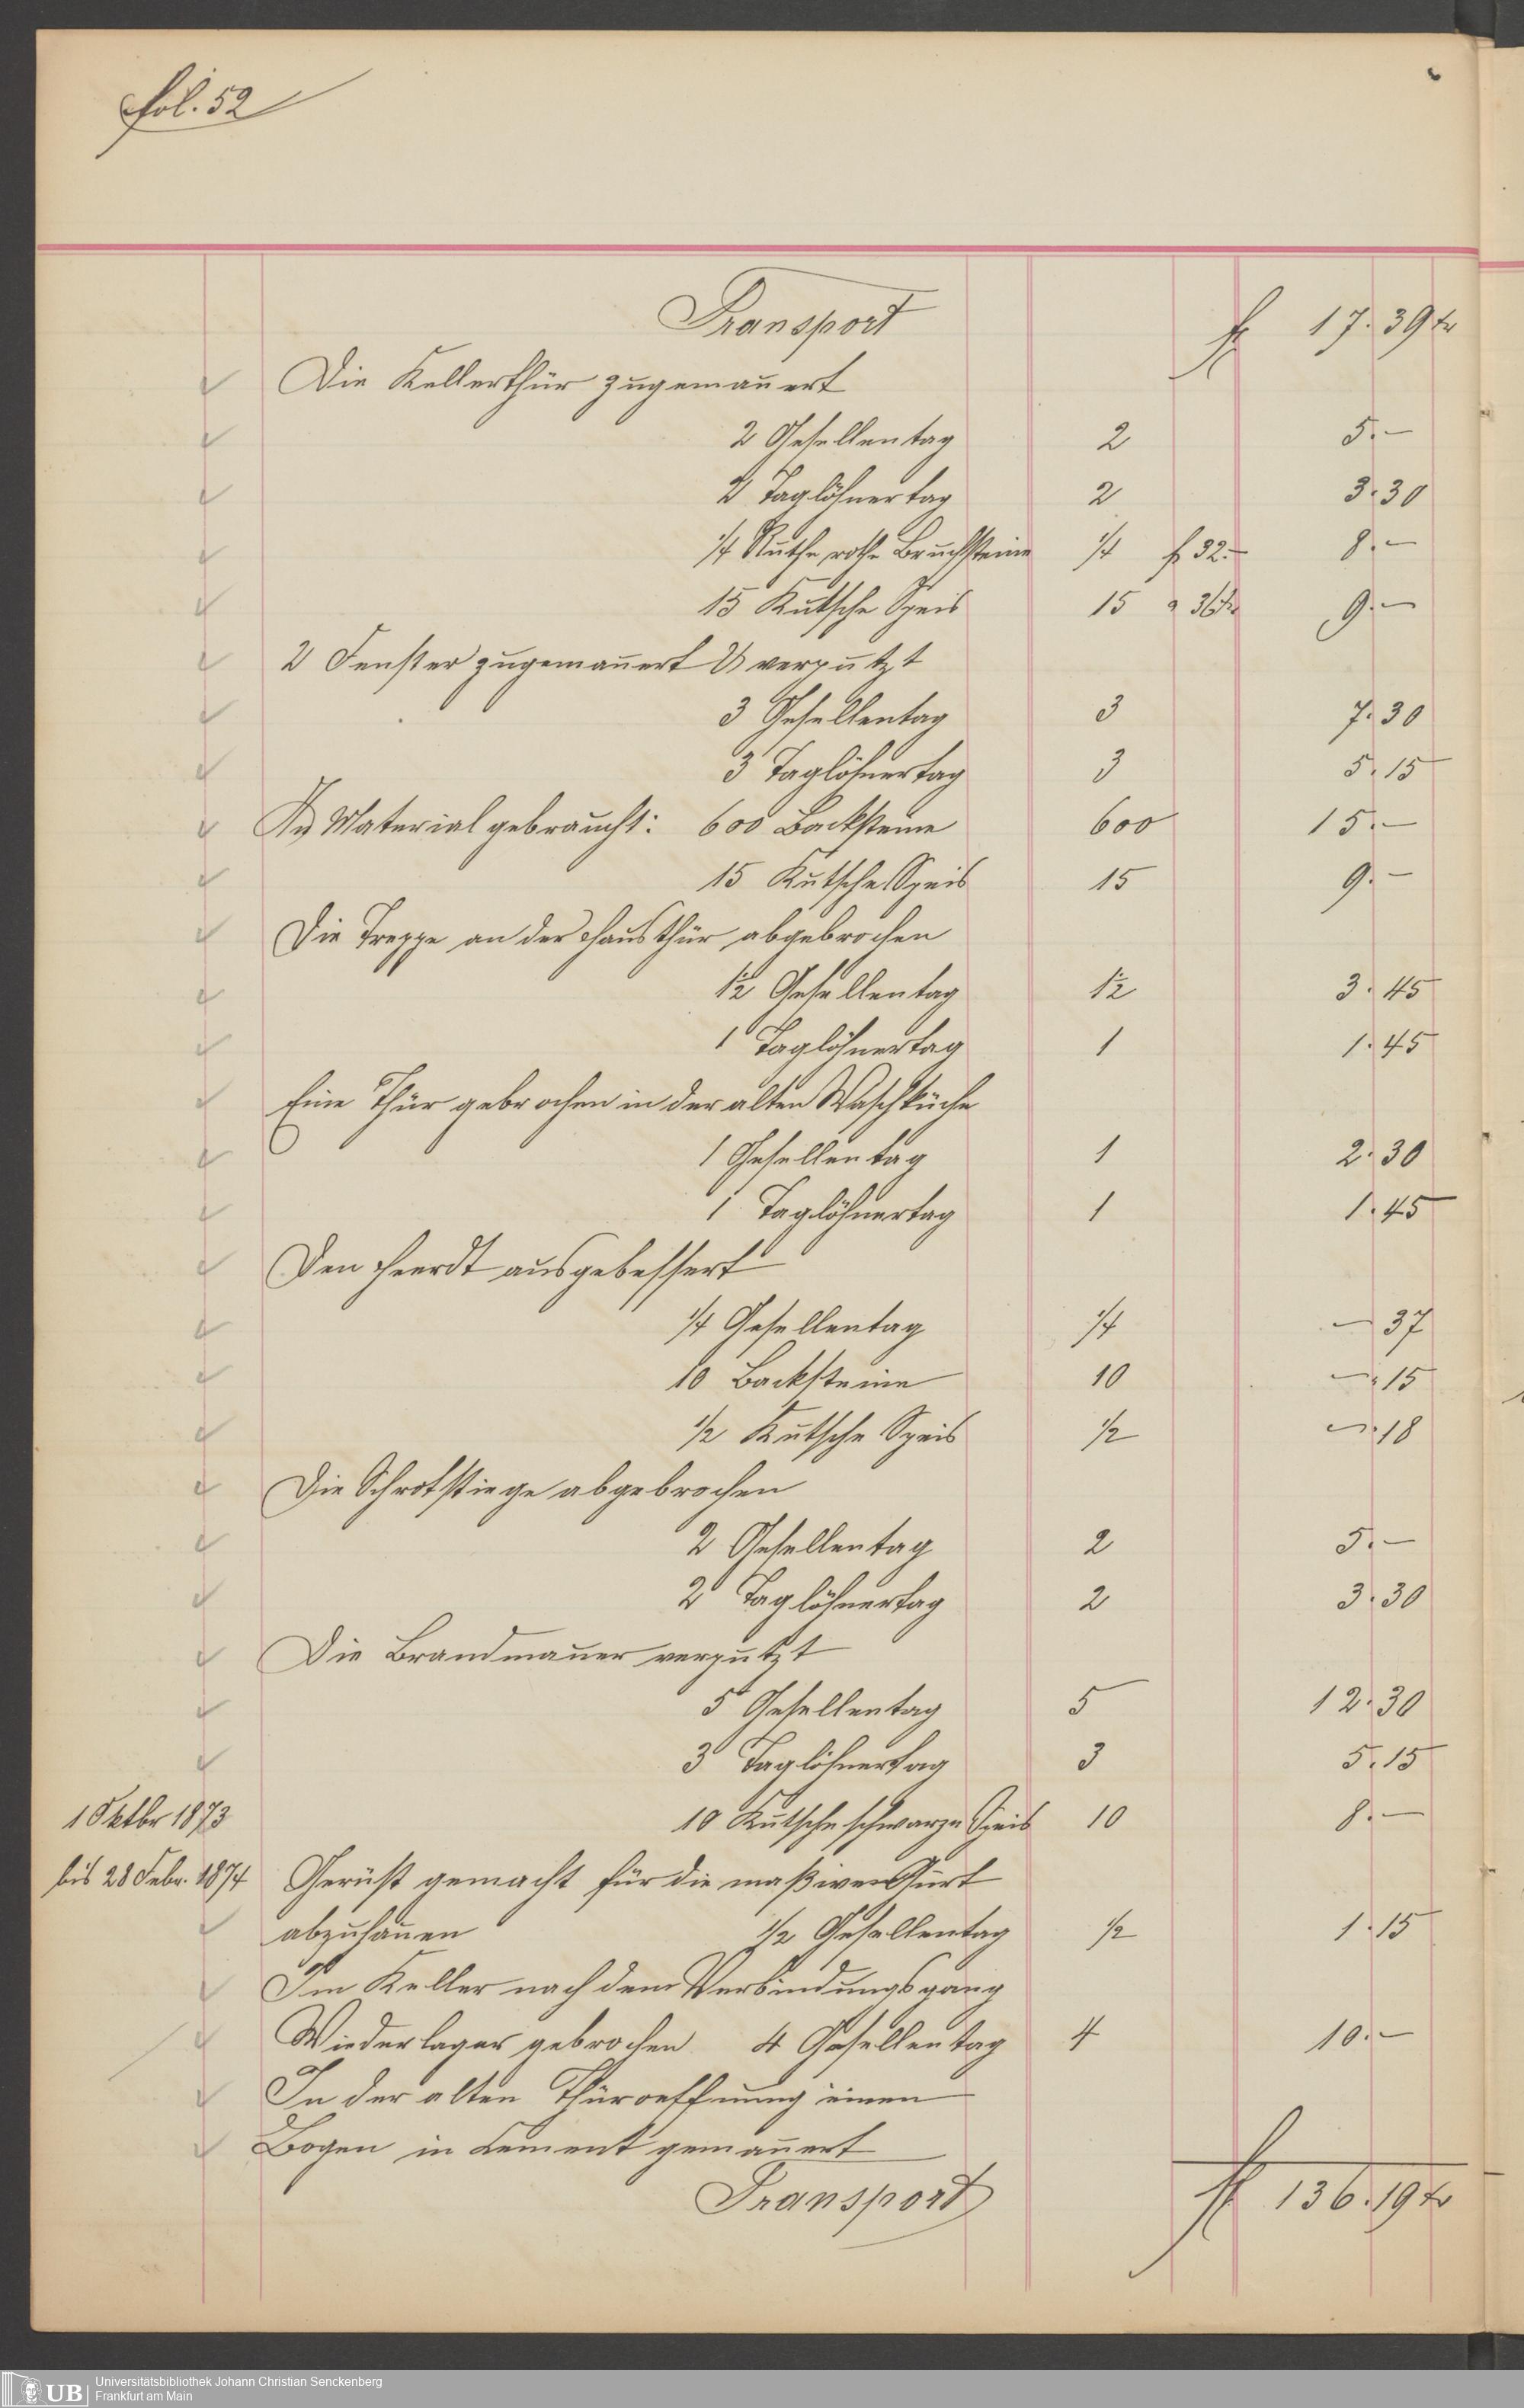 fol. 52
Transport f 17. 39 kr
Die Kellerthür zugemauert
2 Gesellentag 2 5. –
2 Taglöhnertag 2 3. 30
1/4 Ruthe rothe Bruchsteine 1/4 f 32.– 8. –
15 Kutsche Speis 15 a 36 kr 9. –
2 Fenster zugemauert & verputzt
3 Gesellentag 3 7. 30
3 Taglöhnertag 3 5. 15
An Material gebraucht: 600 Backsteine 600 15. –
15 Kutsche Speis 15 9. –
Die Treppe an der Hausthür abgebrochen
1½ Gesellentag 1½ 3. 45
1 Taglöhnertag 1 1. 45
Eine Thür gebrochen in der alten Waschküche
1 Gesellentag 1 2. 30
1 Taglöhnertag 1 1. 45
Den Heerdt ausgebessert
1/4 Gesellentag 1/4 – 37
10 Backsteine 10 –. 15
1/2 Kutsche Speis 1/2 –. 18
Die Schrotstiege abgebrochen
2 Gesellentag 2 5. –
2 Taglöhnertag 2 3. 30
Die Brandmauer verputzt
5 Gesellentag 5 12. 30
3 Taglöhnertag 3 5. 15
1 Oktbr 1873 10 Kutsche schwarze Speis 10 8. –
bis 28 Febr. 1874 Gerüst gemacht für die maßiven Gurt
abzuhauen 1/2 Gesellentag 1/2 1. 15
Im Keller nach dem Verbindungsgang
Wiederlager gebrochen 4 Gesellentag 4 10. –
In der alten Thüroeffnung einen
Bogen in Cement gemauert
Transport f 136. 19 kr
UB Universitätsbibliothek Johann Christian Senckenberg
Frankfurt am Main